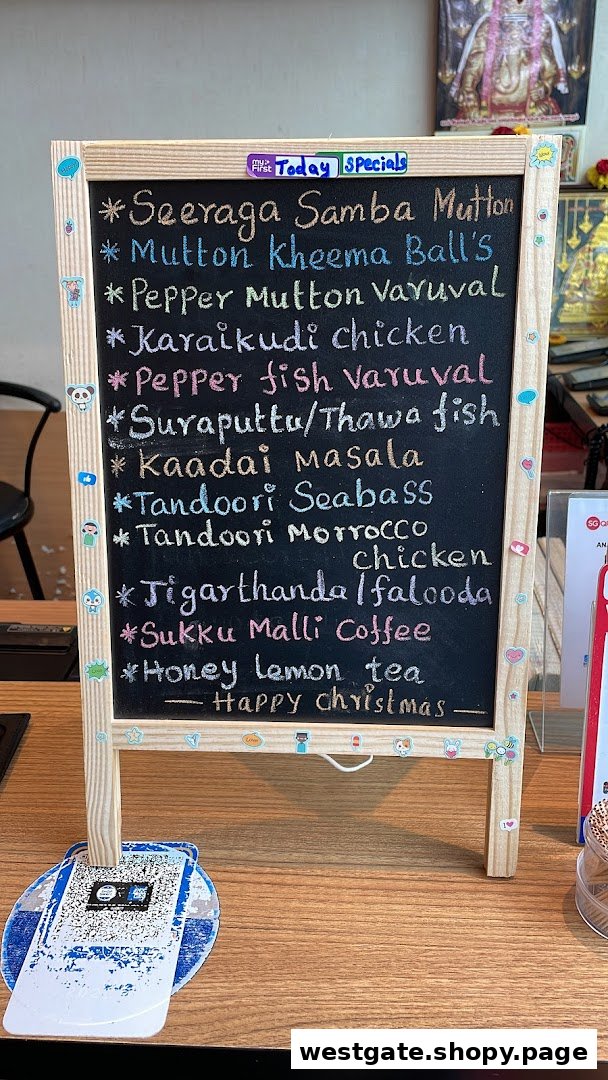 my First Today Specials
*Seeraga Samba Mutton
*Mutton Kheema Ball's
*Pepper Mutton Varuval
*Karaikudi chicken
*Pepper fish varuval
*Suraputtu/Thawa fish
*Kaadai Masala
*Tandoori Seabass
*Tandoori Morrocco
chicken
*Jigarthanda/falooda
*Sukku Malli Coffee
*Honey lemon tea
— Happy Christmas —
westgate.shopy.page